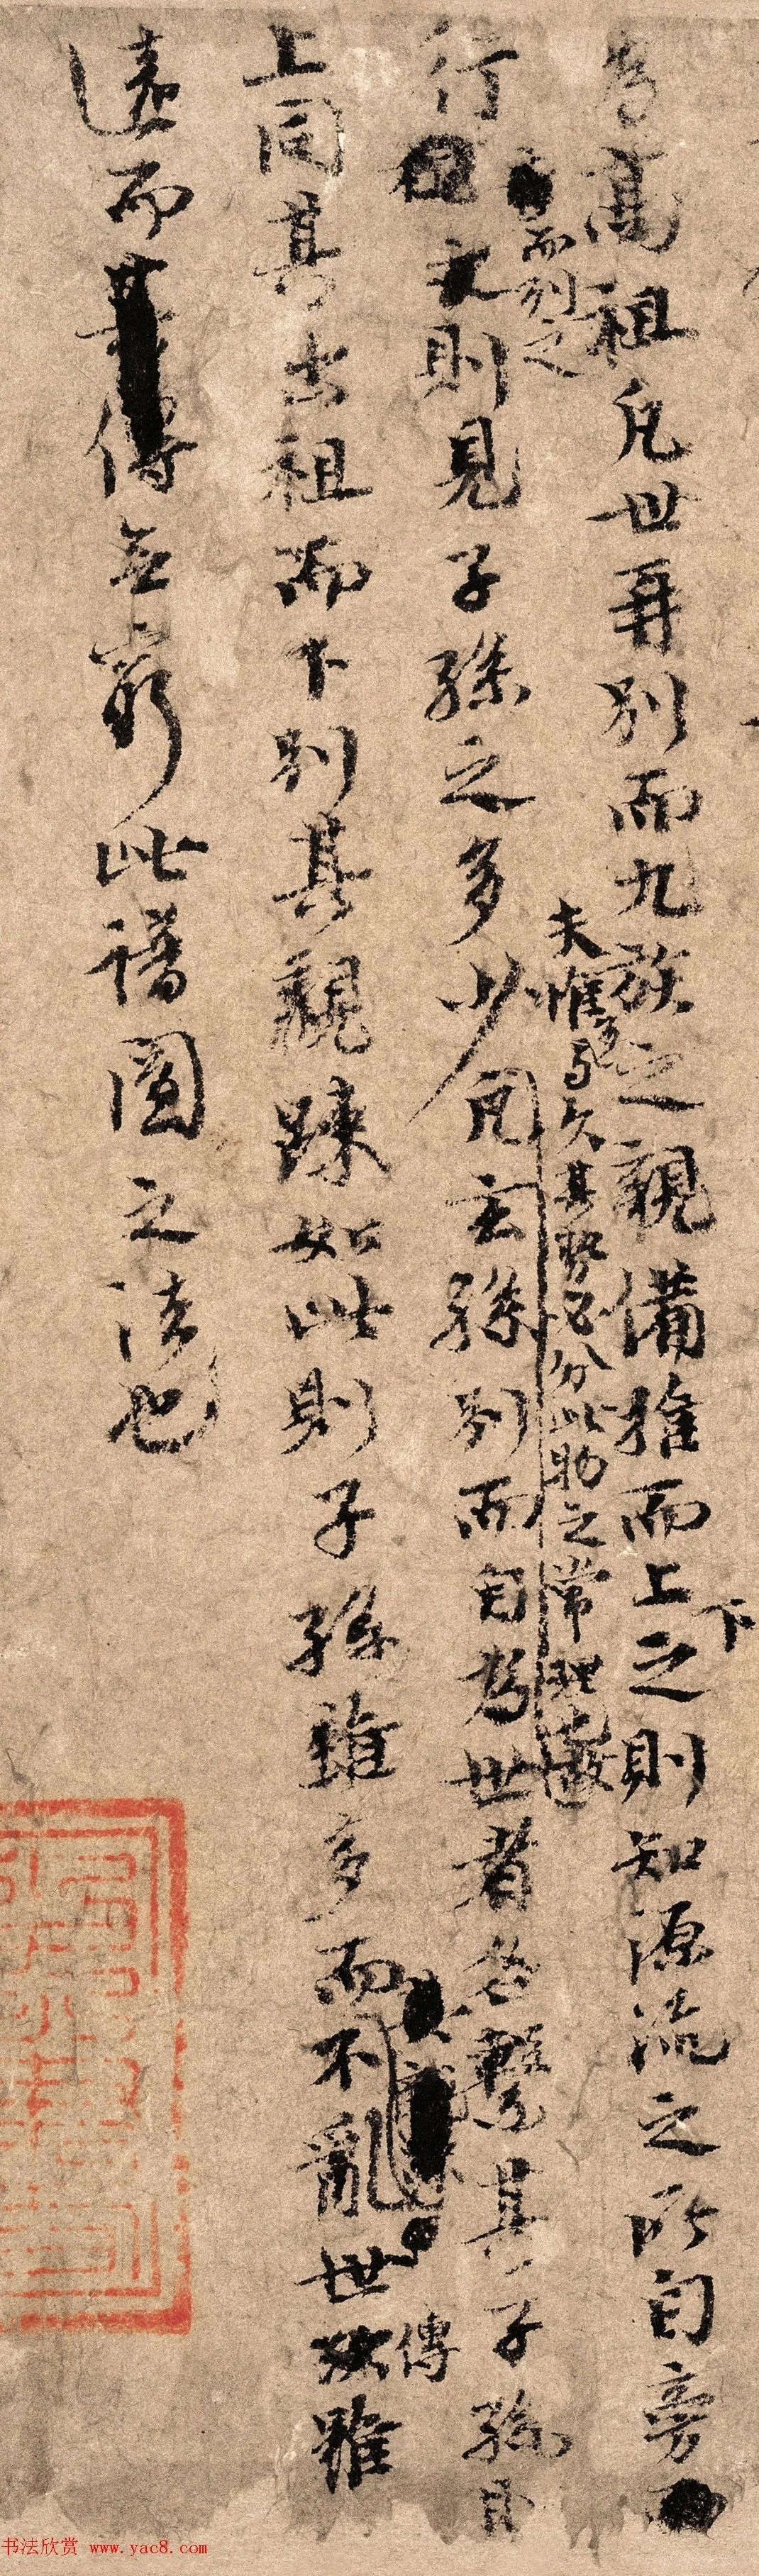 為高祖凡世再别而九族之親備推而上下之則知源流之所自旁
行而列之則見子孫之多少夫惟多與久其勢必分此物之常理也故凡玄孫别而自為世者各繫其子孫
上同其出祖而下别其親踈如此則子孫雖多而不亂世傳雖
遠而傳无窮此譜圖之法也
书法欣赏 www.yac8.com